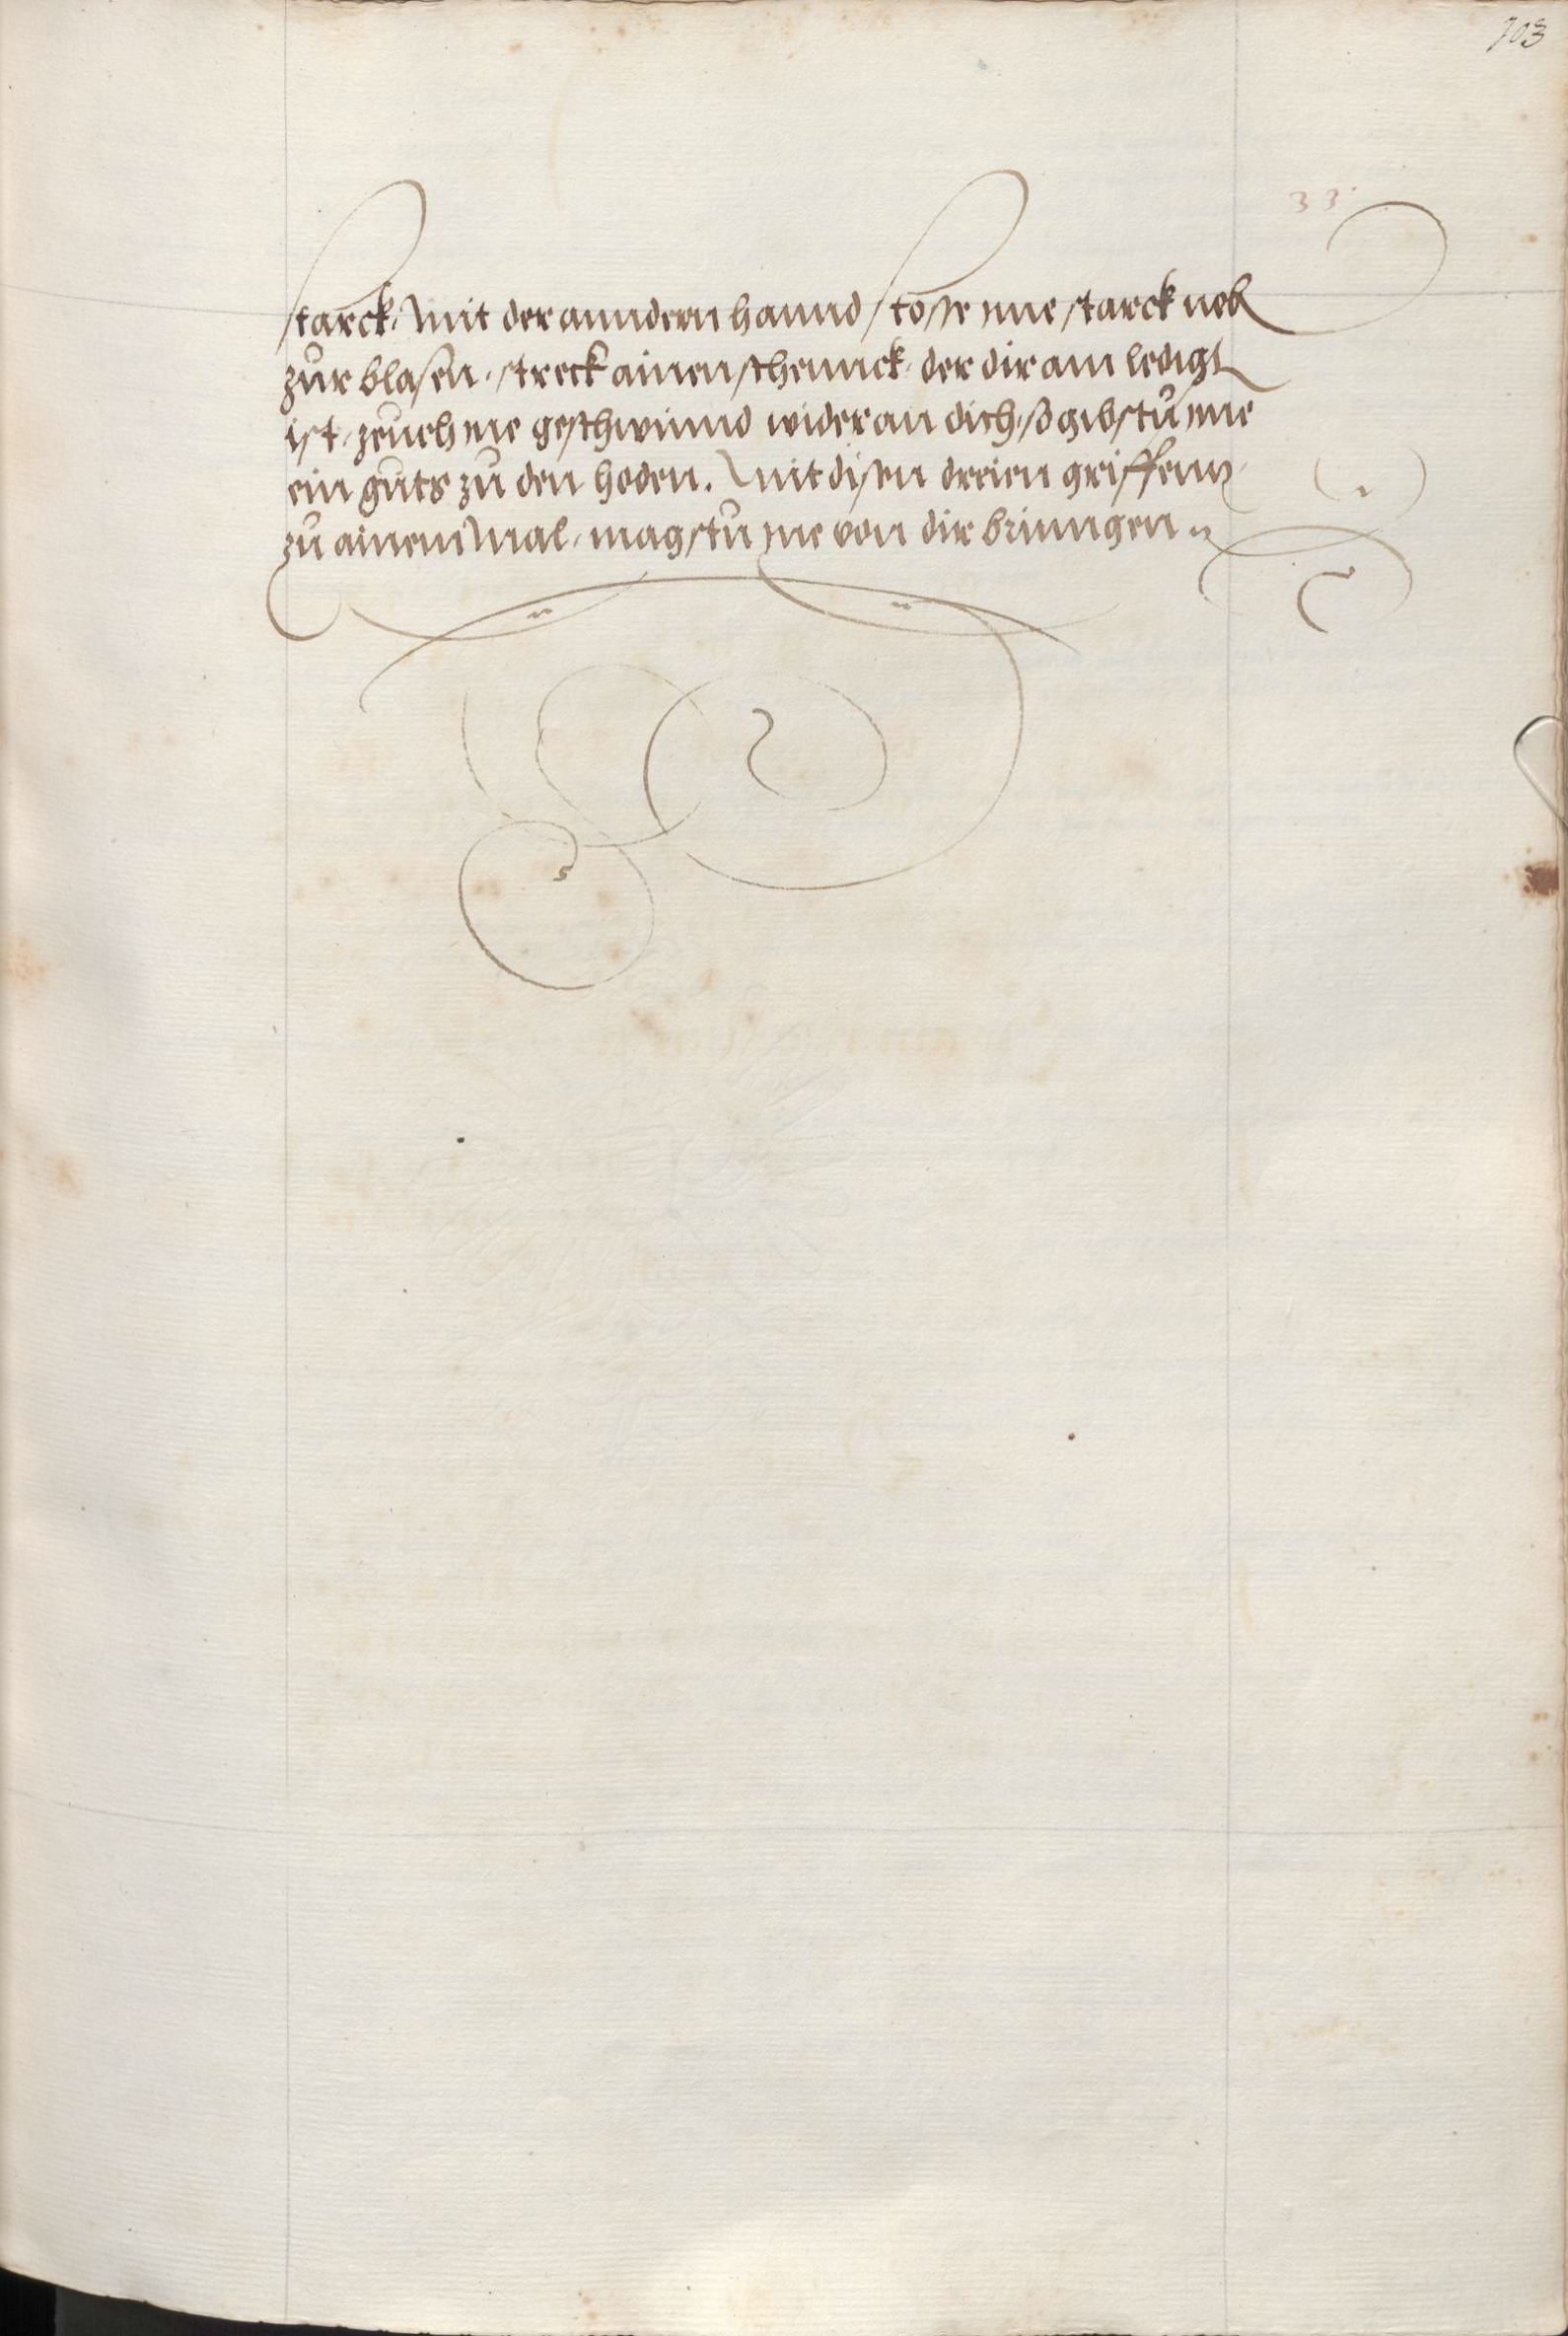 103
33
starck, Mit der anndern hannd stosse jme starck neb
zůr blasen, streck ainen schennck, der dir am ledigst
ist, zeuch jne geschwinnd wider an dich, so gibstu jme
ein gůts zů den hoden. Mit disen dreien griffenn,
zů ainem Mal, magstu jne von dir brinngen